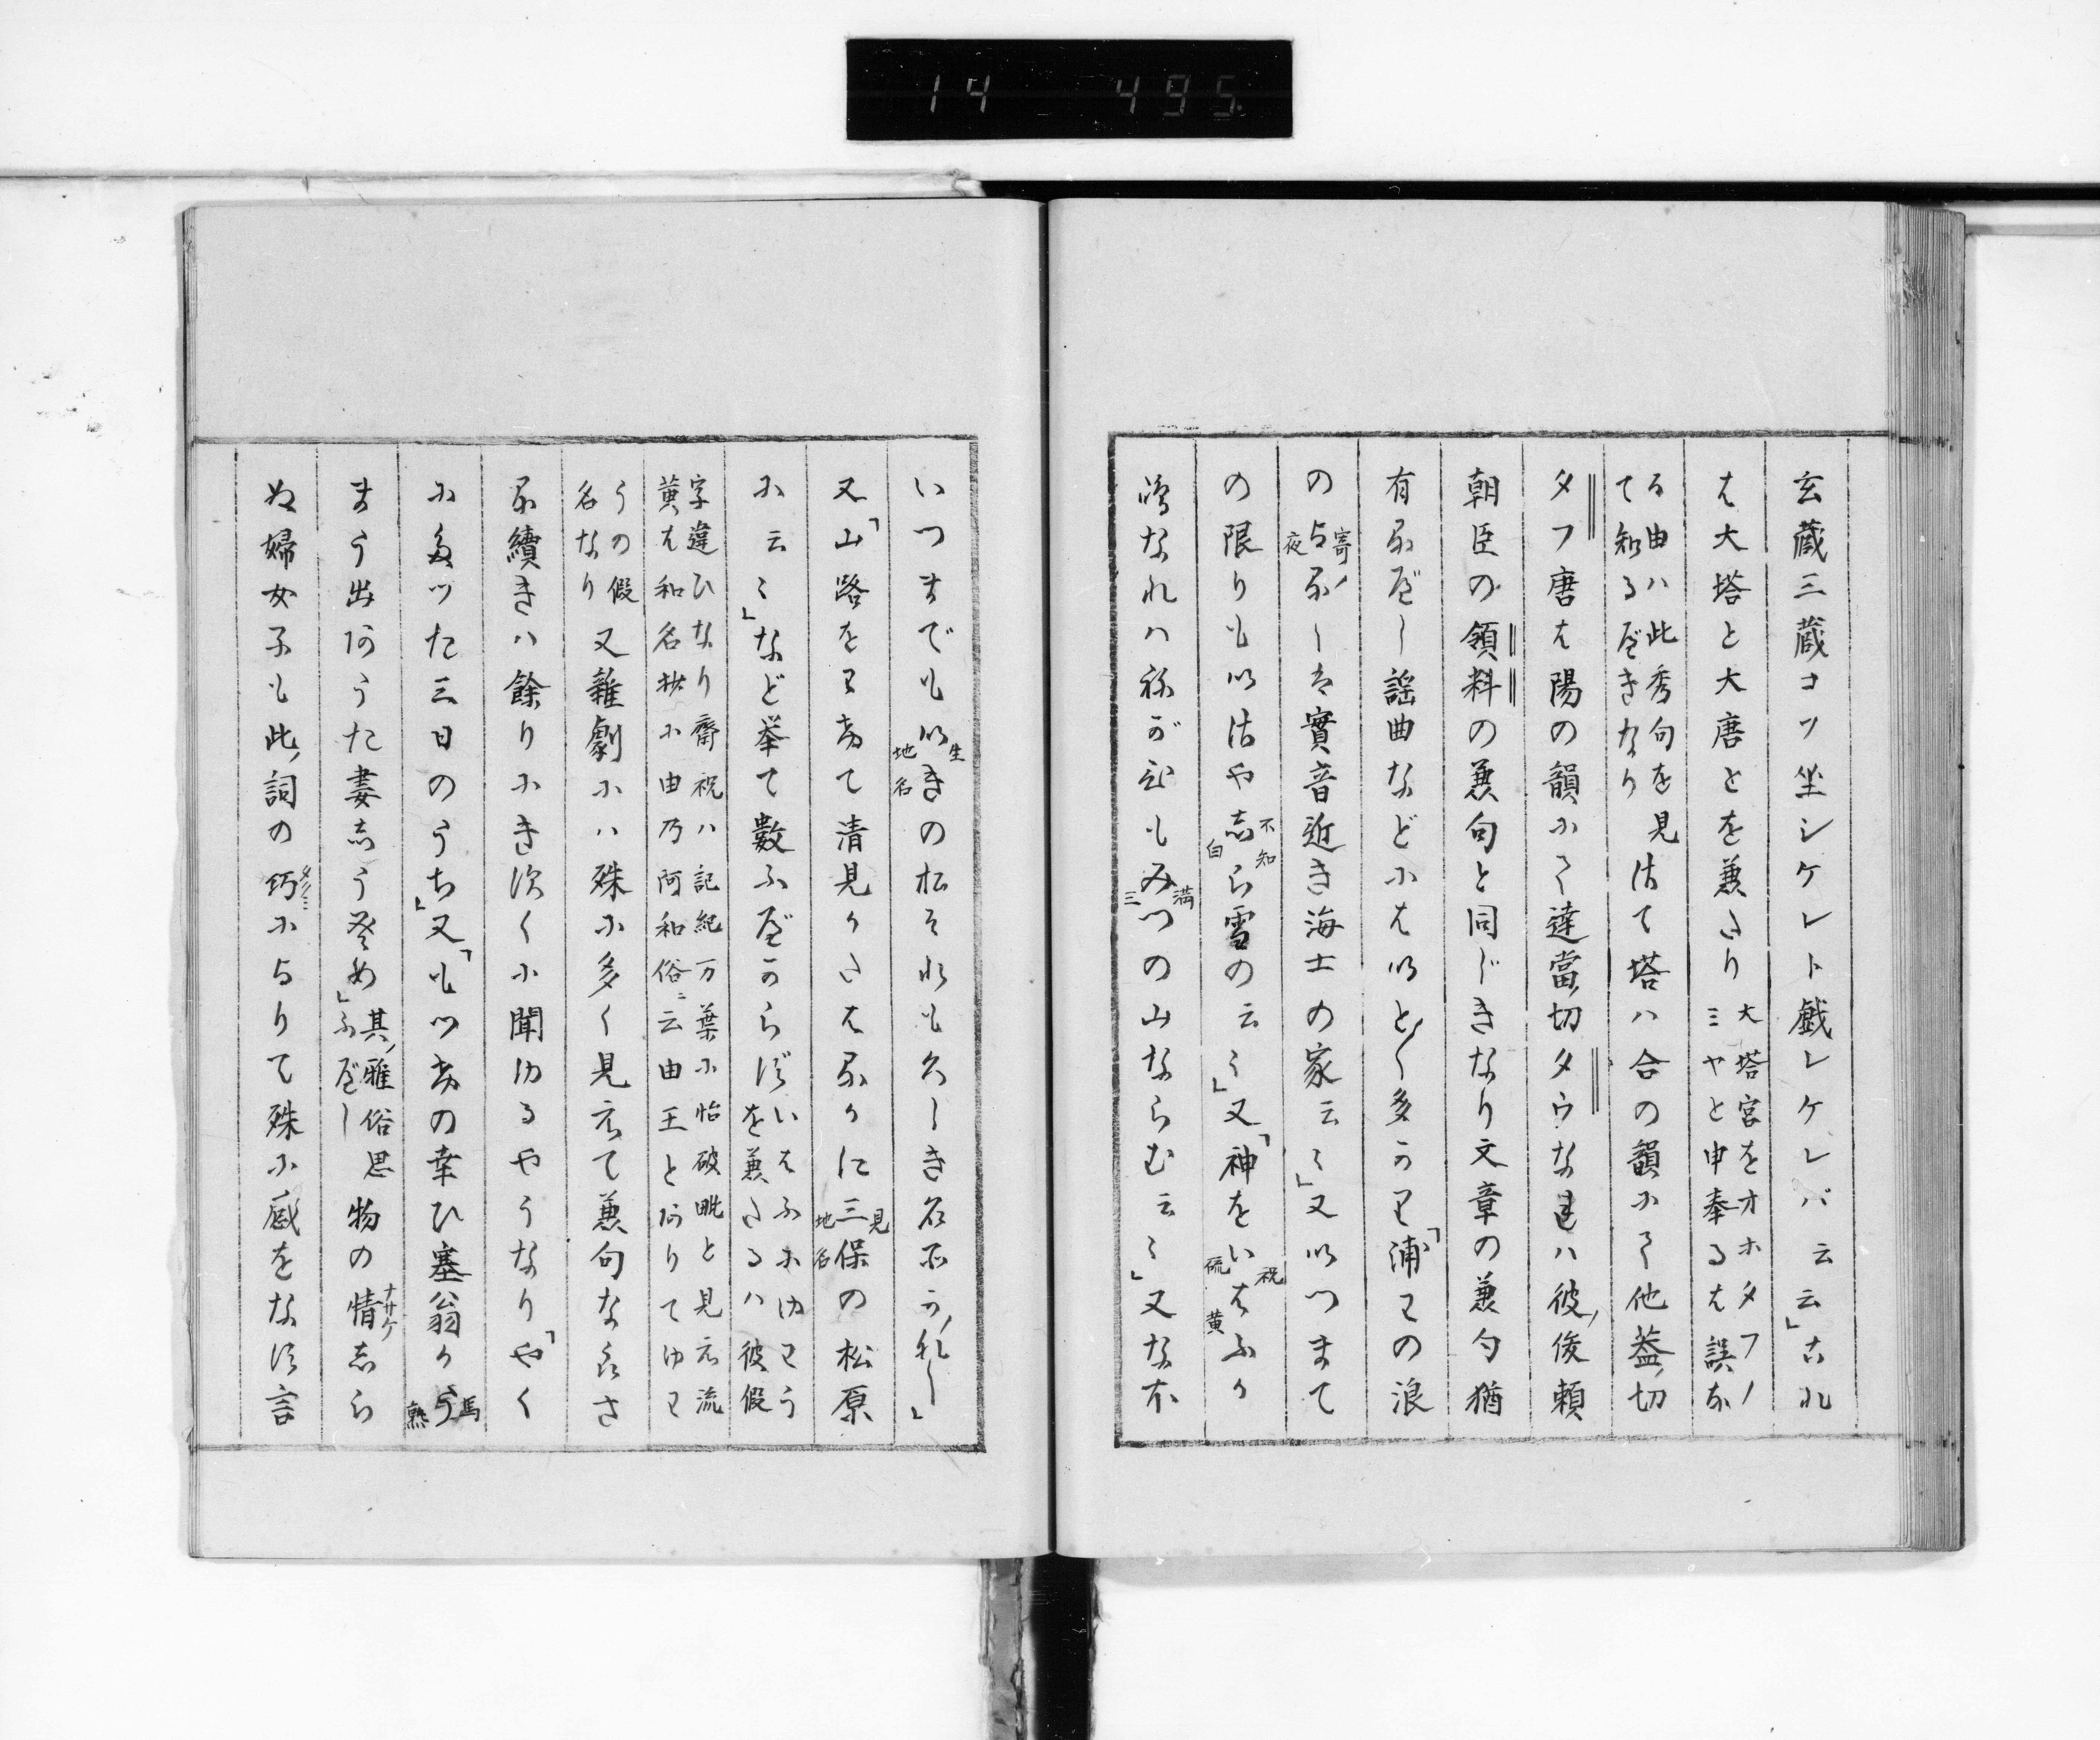 14 495
玄蔵三蔵コソ坐シケレト戯レケレバ云云」古れ
は大塔と大唐とを兼たり大塔宮をオホタフノミヤと申奉るは誤な
る由ハ此秀句を見て知るべきなりはて塔ハ合の韻にて他蓋切
タフ唐は陽の韻にて達當切タウなれハ彼俊頼
朝臣の領料の兼句と同じきなり文章の兼句猶
有るべし謡曲などにはいと多かり「浦わの浪
のよる寄夜しは實音近き海士の家云々」又いつまて
の限りもいさやしら不知白雪の云々」又「神をいはふ祝硫黄か
嶋なれハねがひもみつ満三の山ならむ云々」又な不
いつまでもいき生地名の松それも久しき名所かれし」
又「山路をわけて清見かたはるかに三見地名保の松原
に云々」など挙て數ふべからずいはふにゆわうを兼たるハ彼假
字違ひなり齋祝ハ記紀万葉に怡破毗と見え流黄は和名抄に由乃阿和俗ニ云由王とありてゆわ
うの假名なり又雜劇にハ殊に多く見えて兼句なるさ
る續きハ餘りにき次くに聞ゆるやうなり「やく
にたツた三日のうち」又「もツけの幸ひ塞翁かう馬
まう出あうた妻しう發め」其雅俗思ふべし物の情ナサケしら
ぬ婦女子も此詞の巧タクミによりて殊に感をなす言